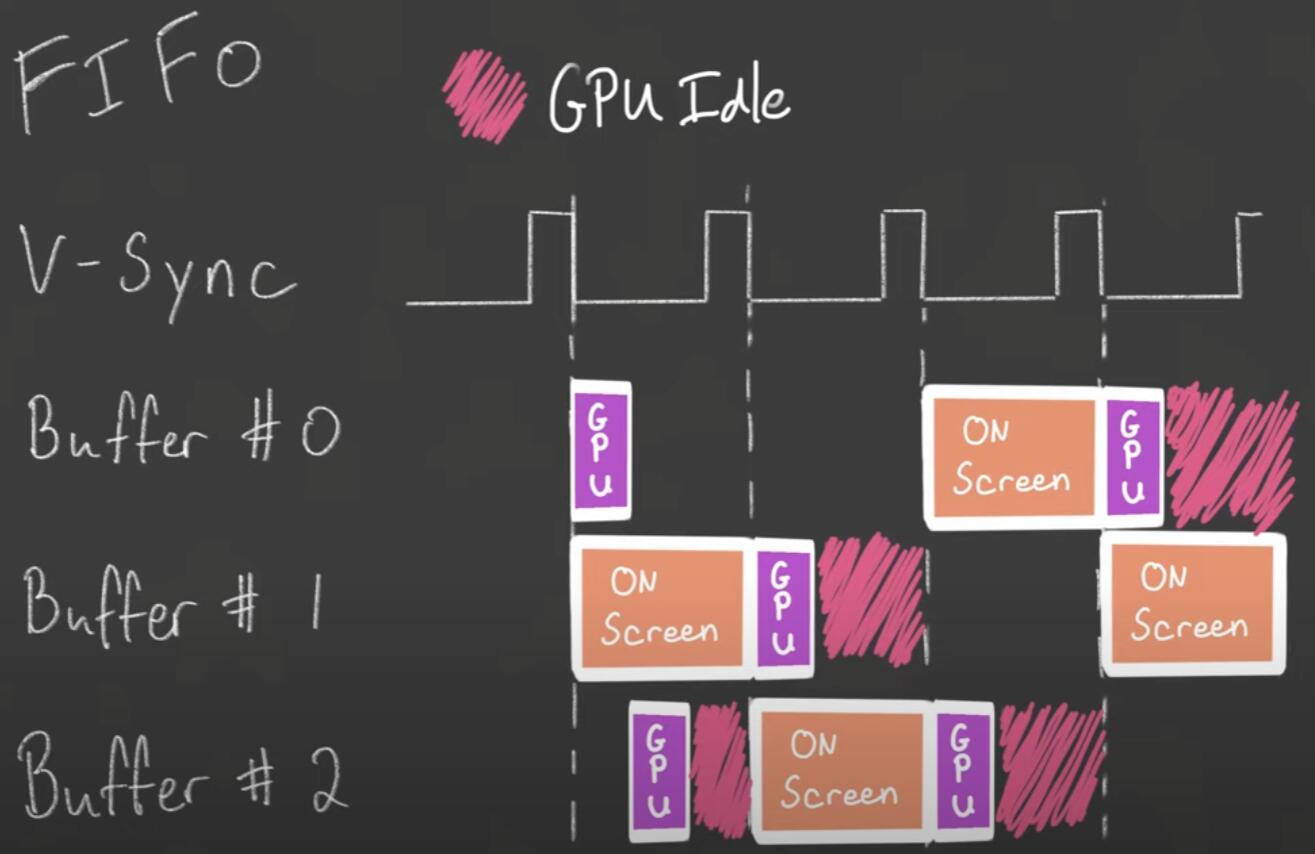 FIFO
GPU Idle
V-Sync
Buffer # 0
GPU
ON
Screen
GPU
Buffer # 1
ON
Screen
GPU
ON
Screen
Buffer # 2
GPU
ON
Screen
GPU